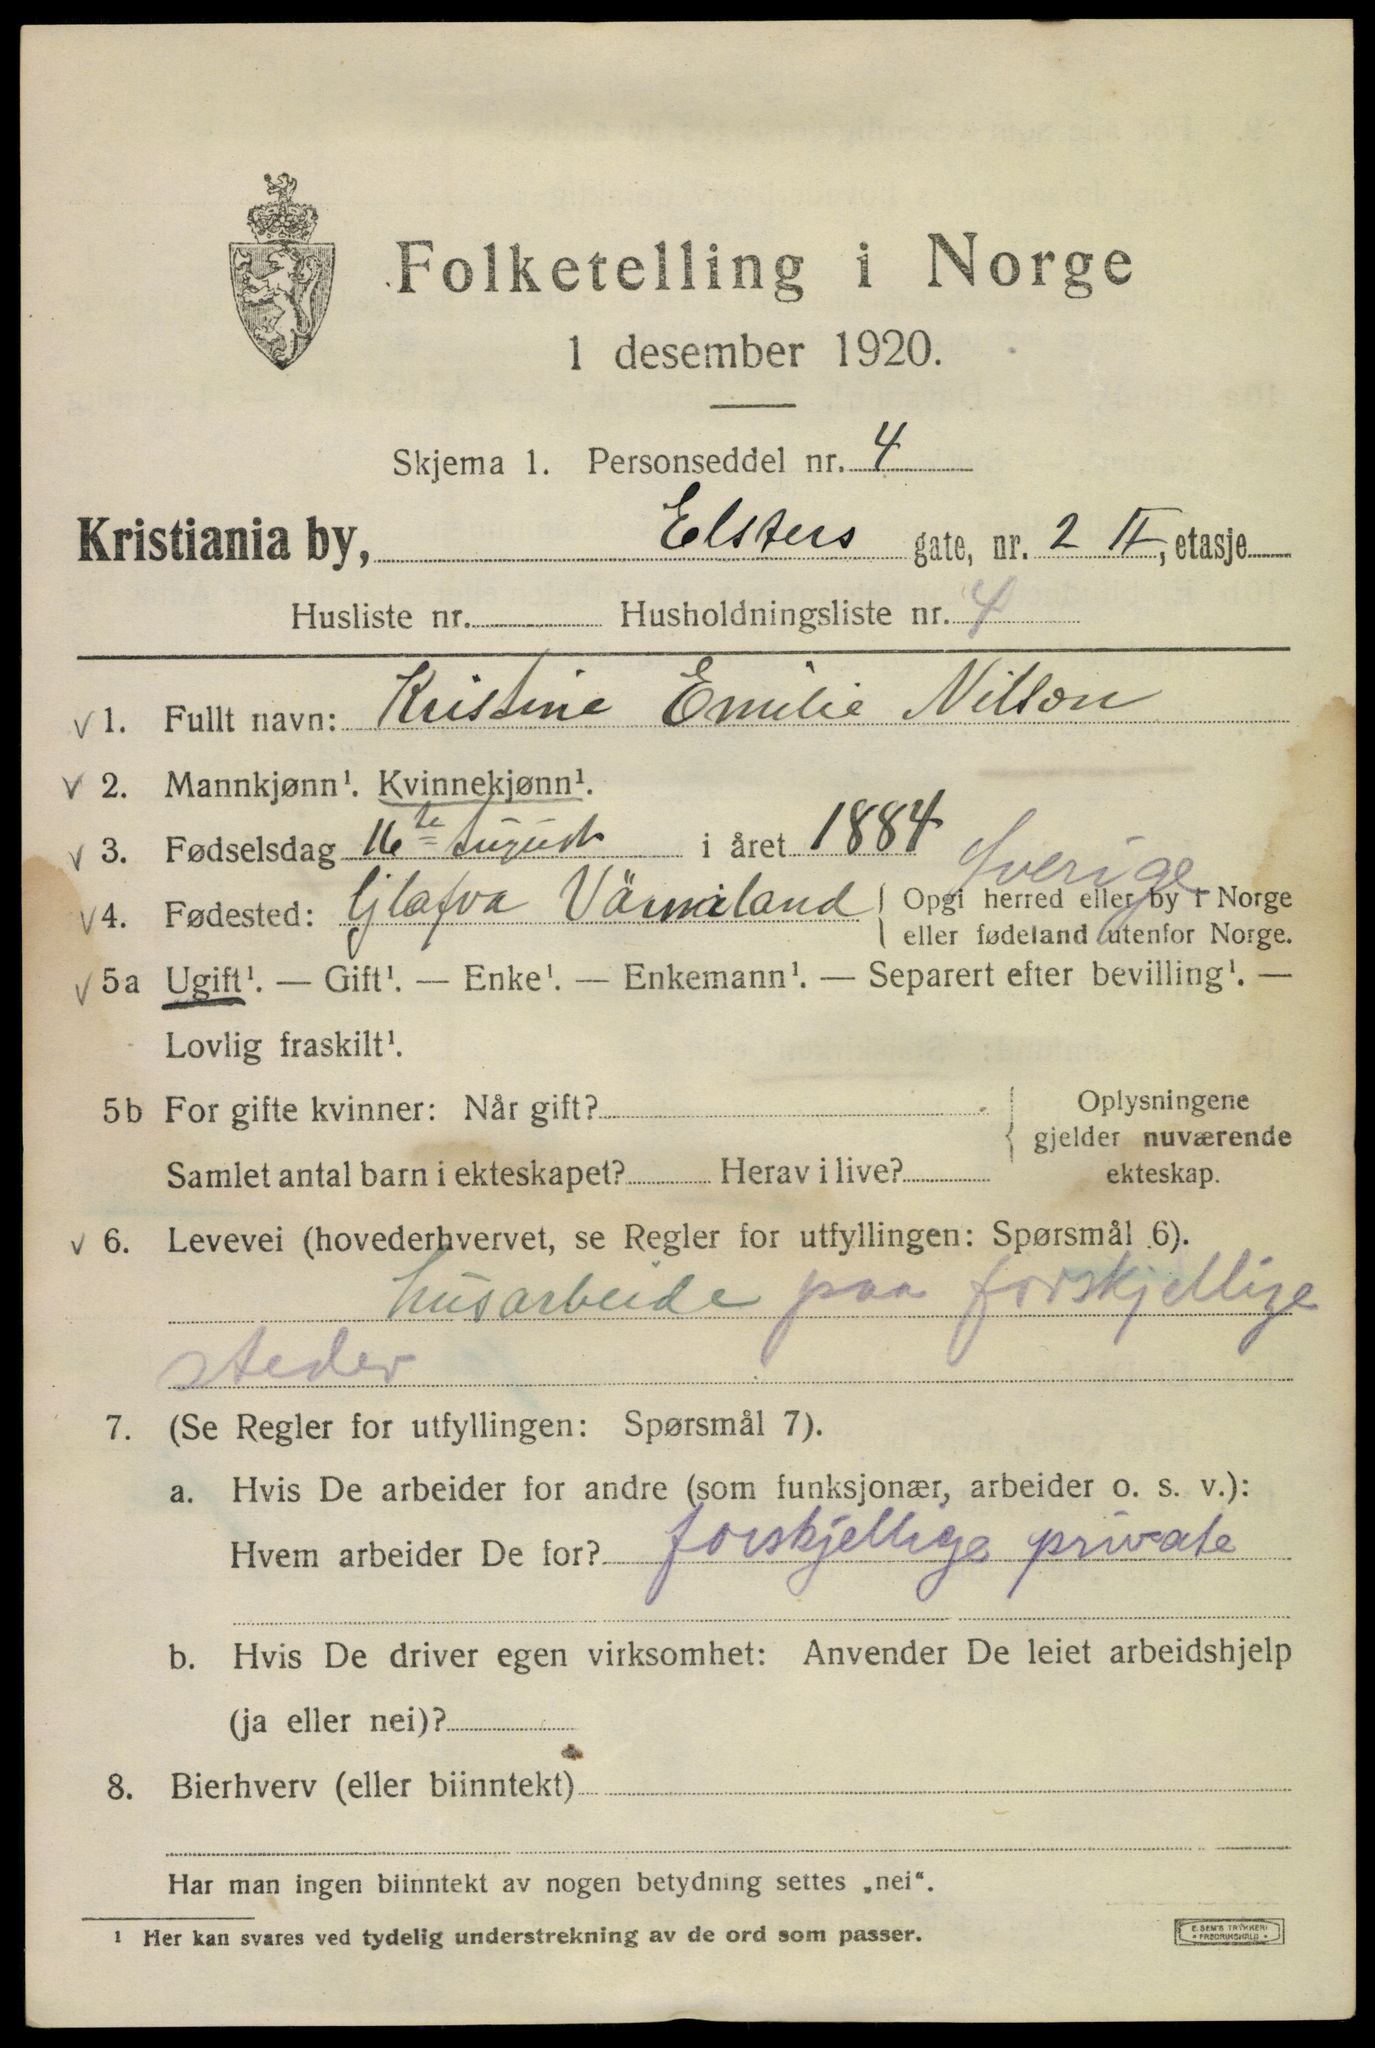 Folketelling i Norge
1 desember 1920.
Skjema 1. Personseddel nr. 4
Kristiania by, Elsters gate, nr. 2 II, etasje
Husliste nr. Husholdningsliste nr. 4
√ 1. Fullt navn: Kristine Emilie Nilson
√ 2. Mannkjønn¹. Kvinnekjønn¹.
√ 3. Fødselsdag 16te August i året 1884
Sverige
√ 4. Fødested: Glafva Värmland { Opgi herred eller by i Norge
eller fødeland utenfor Norge.
√ 5a Ugift¹. — Gift¹. — Enke¹. — Enkemann¹. — Separert efter bevilling¹. —
Lovlig fraskilt¹.
5b For gifte kvinner: Når gift? Oplysningene
gjelder nuværende
Samlet antal barn i ekteskapet? Herav i live? ekteskap.
√ 6. Levevei (hovederhvervet, se Regler for utfyllingen: Spørsmål 6).
husarbeide paa forskjellige
steder
7. (Se Regler for utfyllingen: Spørsmål 7).
a. Hvis De arbeider for andre (som funksjonær, arbeider o. s. v.):
Hvem arbeider De for? forskjellige private
b. Hvis De driver egen virksomhet: Anvender De leiet arbeidshjelp
(ja eller nei)?
8. Bierhverv (eller biinntekt)
Har man ingen biinntekt av nogen betydning settes „nei“.
¹ Her kan svares ved tydelig understrekning av de ord som passer.
E. SEM'S TRYKKERI
• FREDRIKSHALD •